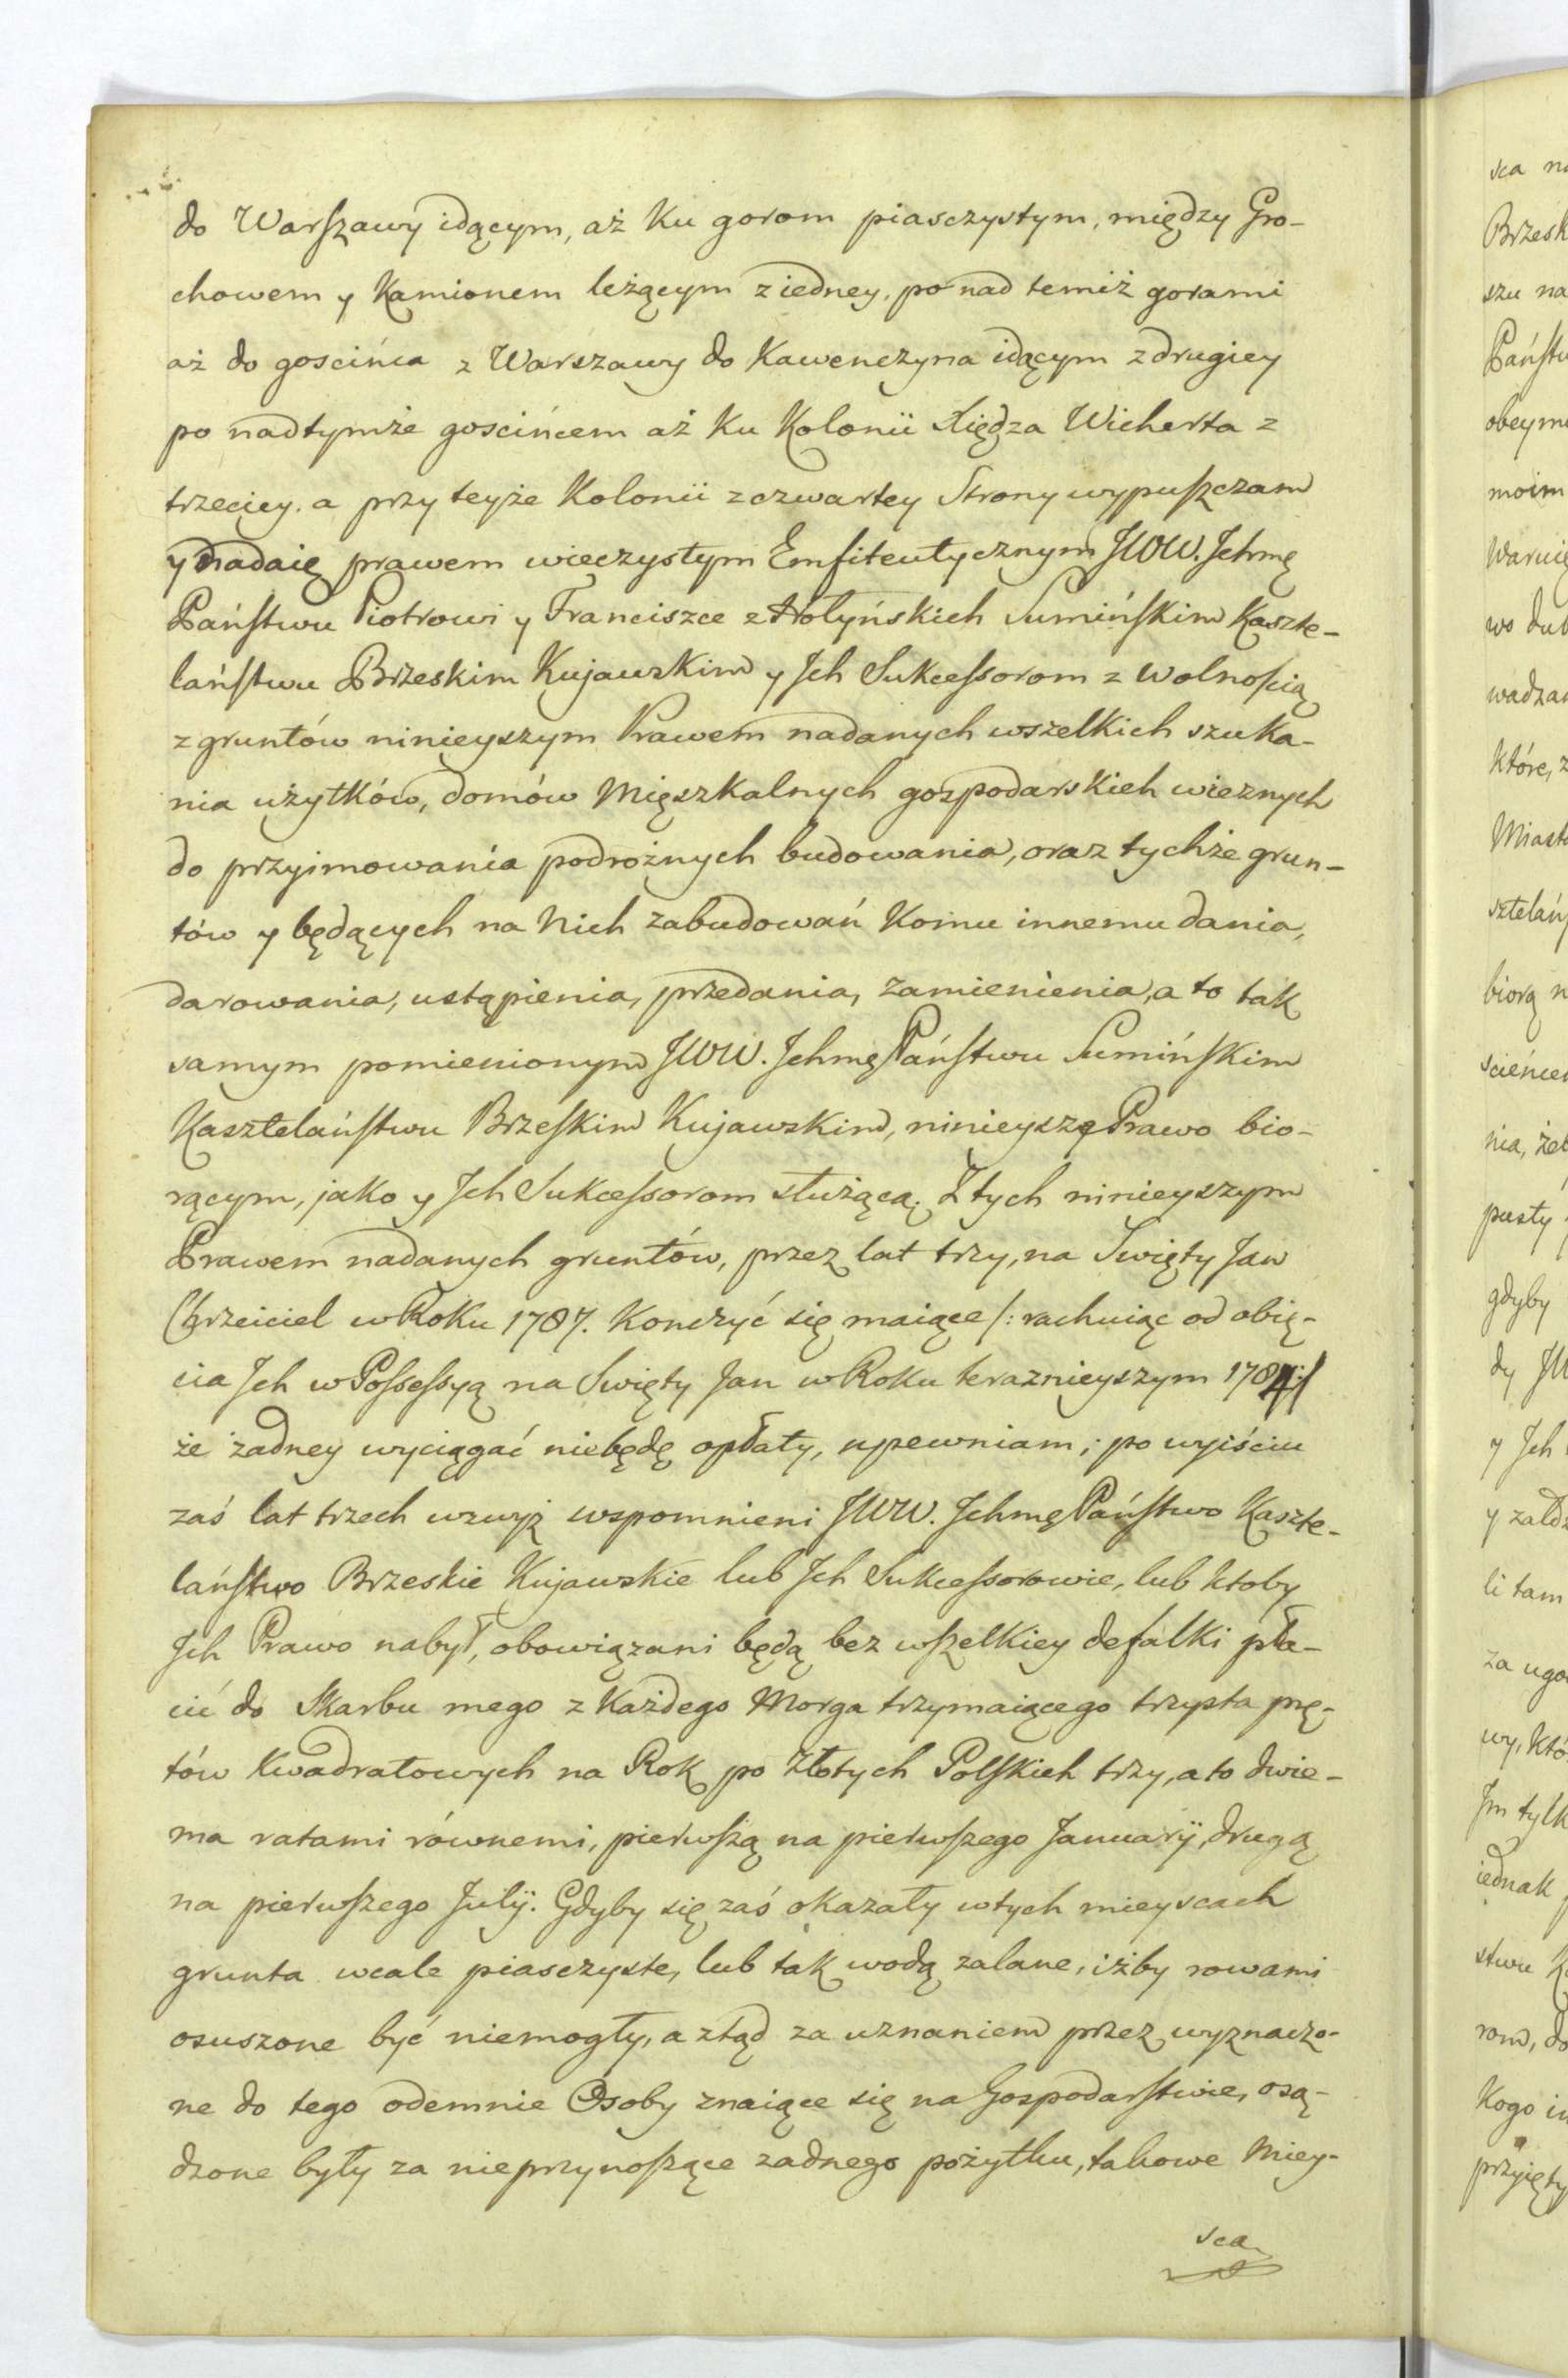 do Warszawy idącym, aż ku gorom piasczystym, między Gro-
chowem y Kamionem leżącym z iedney, po nad temiż gorami
aż do goscińca z Warszawy do Kawenczyna idącym z drugiey
po nad tymże goscińcem aż ku Kolonii Xiędza Wicherta z
trzeciey. a przy teyże Kolonii z czwartey Strony wypuszczam
y nadaię prawem wieczystym Emfiteutycznym JWW. Jchmę
Państwu Piotrowi y Franciszce z Hołyńskich Sumińskim Kaszte-
laństwu Brzeskim Kujawskim y Jch Sukcessorom z wolnością
z gruntów ninieyszym Prawem nadanych wszelkich szuka-
nia użytków, domów Mięszkalnych gospodarskich wieznych
do przyimowania podrożnych budowania, oraz tychże grun-
tów y będących na Nich zabudowań komu innemu dania,
darowania, ustąpienia, przedania, zamienienia, a to tak
samym pomienionym JWW. Jchmę Państwu Sumińskim
Kasztelaństwu Brzeskim Kujawskim, ninieysze Prawo bio-
rącym, jako y Jch Sukcessorom służącą. Z tych ninieyszym
Prawem nadanych gruntów, przez lat trzy, na Swięty Jan
Chrzciciel w Roku 1787. konczyć się maiące /: rachuiąc od obię-
cia Jch w Possessyą na Swięty Jan w Roku teraznieyszym 1784 :/
że żadney wyciągać niebędę opłaty, upewniam; po wyiściu
zaś lat trzech wzwyż wspomnieni JWW. Jchmę Państwo Kaszte-
laństwo Brzeskie Kujawskie lub Jch Sukcessorowie, lub ktoby
Jch Prawo nabył, obowiązani będą bez wszelkiey defalki pła-
cić do Skarbu mego z każdego Morga trzymaiącego trzysta prę-
tów kwadratowych na Rok po Złotych Polskich trzy, a to dwie-
ma ratami równemi, pierwszą na pierwszego Januarÿ, drugą
na pierwszego Julÿ. Gdyby się zaś okazały w tych mieyscach
grunta wcale piasczyste, lub tak wodą zalane, iżby rowami
osuszone być niemogły, a ztąd za uznaniem przez wyznaczo-
ne do tego odemnie Osoby znaiące się na Gospodarstwie, osą-
dzone były za nieprzynoszące zadnego pożytku, takowe Miey-
sca